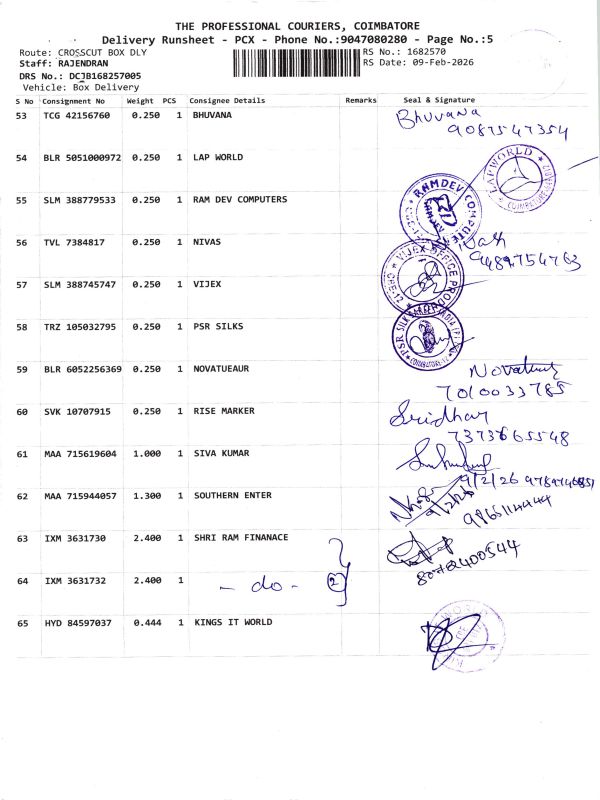 THE PROFESSIONAL COURIERS, COIMBATORE
Delivery Runsheet - PCX - Phone No.:9047080280 - Page No.:5
Route: CROSSCUT BOX DLY RS No.: 1682570
Staff: RAJENDRAN RS Date: 09-Feb-2026
DRS No.: DCJB168257005
Vehicle: Box Delivery
S No Consignment No Weight PCS Consignee Details Remarks Seal & Signature
53 TCG 42156760 0.250 1 BHUVANA Bhuvana
9087547354
54 BLR 5051000972 0.250 1 LAP WORLD LAP WORLD
55 SLM 388779533 0.250 1 RAM DEV COMPUTERS RAMDEV
56 TVL 7384817 0.250 1 NIVAS
57 SLM 388745747 0.250 1 VIJEX VIJEX OFFICE
58 TRZ 105032795 0.250 1 PSR SILKS PSR SILK
59 BLR 6052256369 0.250 1 NOVATUEAUR
7010033785
60 SVK 10707915 0.250 1 RISE MARKER Sridhar
7373665548
61 MAA 715619604 1.000 1 SIVA KUMAR
9/2/26
62 MAA 715944057 1.300 1 SOUTHERN ENTER
63 IXM 3631730 2.400 1 SHRI RAM FINANACE
64 IXM 3631732 2.400 1 - do - 2
65 HYD 84597037 0.444 1 KINGS IT WORLD